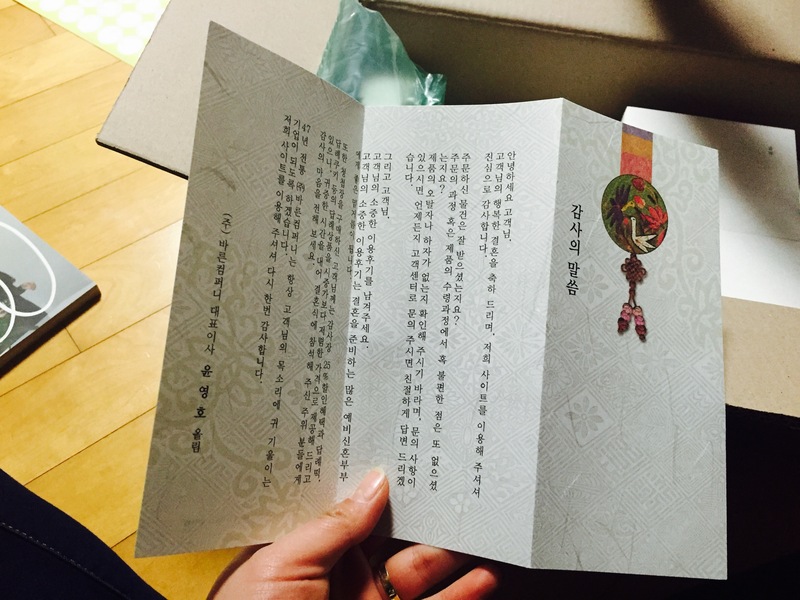 감사의 말씀
안녕하세요 고객님.
고객님의 행복한 결혼을 축하 드리며, 저희 사이트를 이용해 주셔서
진심으로 감사합니다.
주문하신 물건은 잘 받으셨는지요?
주문의 과정 혹은 제품의 수령과정에서 혹 불편한 점은 또 없으셨
는지요?
제품의 오탈자나 하자가 없는지 확인해 주시기 바라며, 문의 사항이
있으시면 언제든지 고객센터로 문의 주시면 친절하게 답변 드리겠
습니다.
그리고 고객님.
고객님의 소중한 이용후기를 남겨주세요.
고객님의 소중한 이용후기는 결혼을 준비하는 많은 예비신혼부부
또한 청첩장을 구매하신 고객님께는 감사장 25%할인혜택과 답례떡,
답례쿠키 등의 답례상품을 시중가보다 저렴한 가격으로 제공해 드리고
있으니, 귀중한 시간을 내어 결혼식에 참석해 주신 주위 분들에게
감사의 마음을 전해 보세요.
47년 전통 ㈜바른컴퍼니는 항상 고객님의 목소리에 귀 기울이는
기업이 되도록 하겠습니다.
저희 사이트를 이용해 주셔서 다시 한번 감사합니다.
(주) 바른컴퍼니 대표이사 윤영호 올림